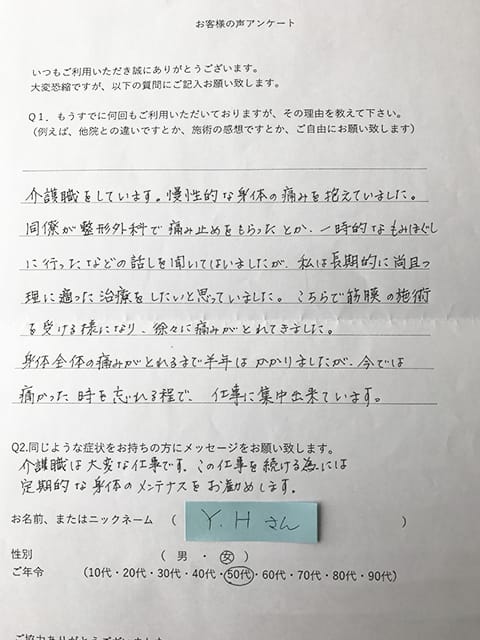 お客様の声アンケート
いつもご利用いただき誠にありがとうございます。
大変恐縮ですが、以下の質問にご記入お願い致します。
Q1．もうすでに何回もご利用いただいておりますが、その理由を教えて下さい。
（例えば、他院との違いですとか、施術の感想ですとか、ご自由にお願い致します）
介護職をしています。慢性的な身体の痛みを抱えていました。
同僚が整形外科で痛み止めをもらったとか、一時的なもみほぐし
に行ったなどの話しを聞いてはいましたが、私は長期的に尚且つ
理に適った治療をしたいと思っていました。こちらで筋膜の施術
を受ける様になり、徐々に痛みがとれてきました。
身体全体の痛みがとれるまで半年はかかりましたが、今では
痛かった時を忘れる程で、仕事に集中出来ています。
Q2.同じような症状をお持ちの方にメッセージをお願い致します。
介護職は大変な仕事です。この仕事を続ける為には
定期的な身体のメンテナスをお勧めします。
お名前、またはニックネーム （ Y.Hさん ）
性別 （ 男 ・ 女 ）
ご年令 （10代・20代・30代・40代・50代・60代・70代・80代・90代）
ご協力ありがとうございました